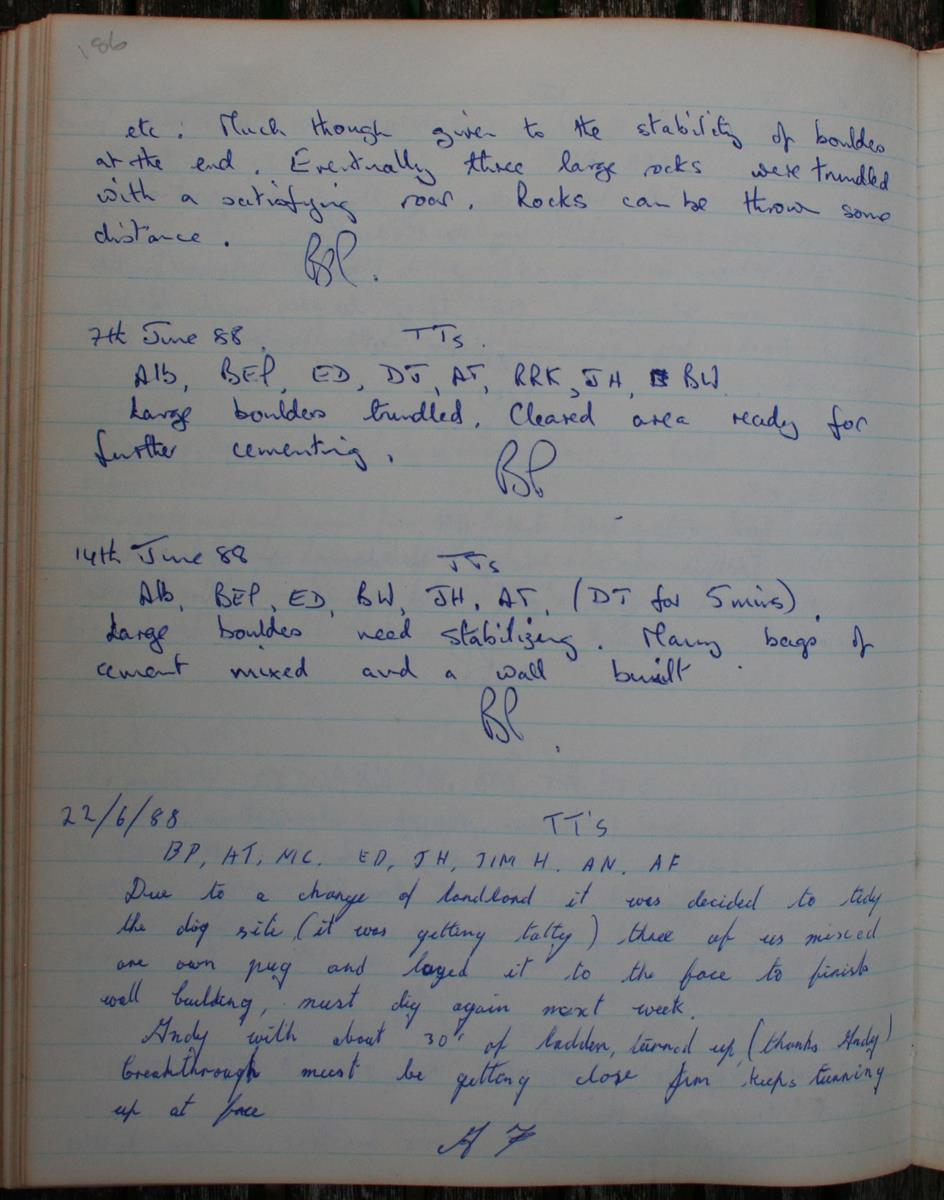 186
etc. Much though given to the stability of boulders
at the end. Eventually three large rocks were trundled
with a satisfying roar. Rocks can be thrown some
distance.
BP.
7th June 88. TTs.
Alb, BEP, ED, DT, AT, RRK, JH, BW
Large boulders trundled. Cleared area ready for
further cementing.
BP
14th June 88 TTs
Alb, BEP, ED, BW, JH, AT, (DT for 5 mins).
Large boulders need stabilizing. Many bags of
cement mixed and a wall built.
BP.
22/6/88 TT's
BP, AT, MC. ED, JH, JIM H. AN. AF
Due to a change of landlord it was decided to tidy
the dig site (it was getting tatty) three of us mixed
are own pug and layed it to the face to finish
wall building, must dig again next week.
Andy with about 30' of ladder, turned up, (thanks Andy)
breakthrough must be getting close Jim keeps turning
up at face
A F